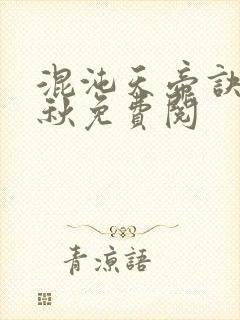 混沌天帝訣
秋免費閱
青涼語